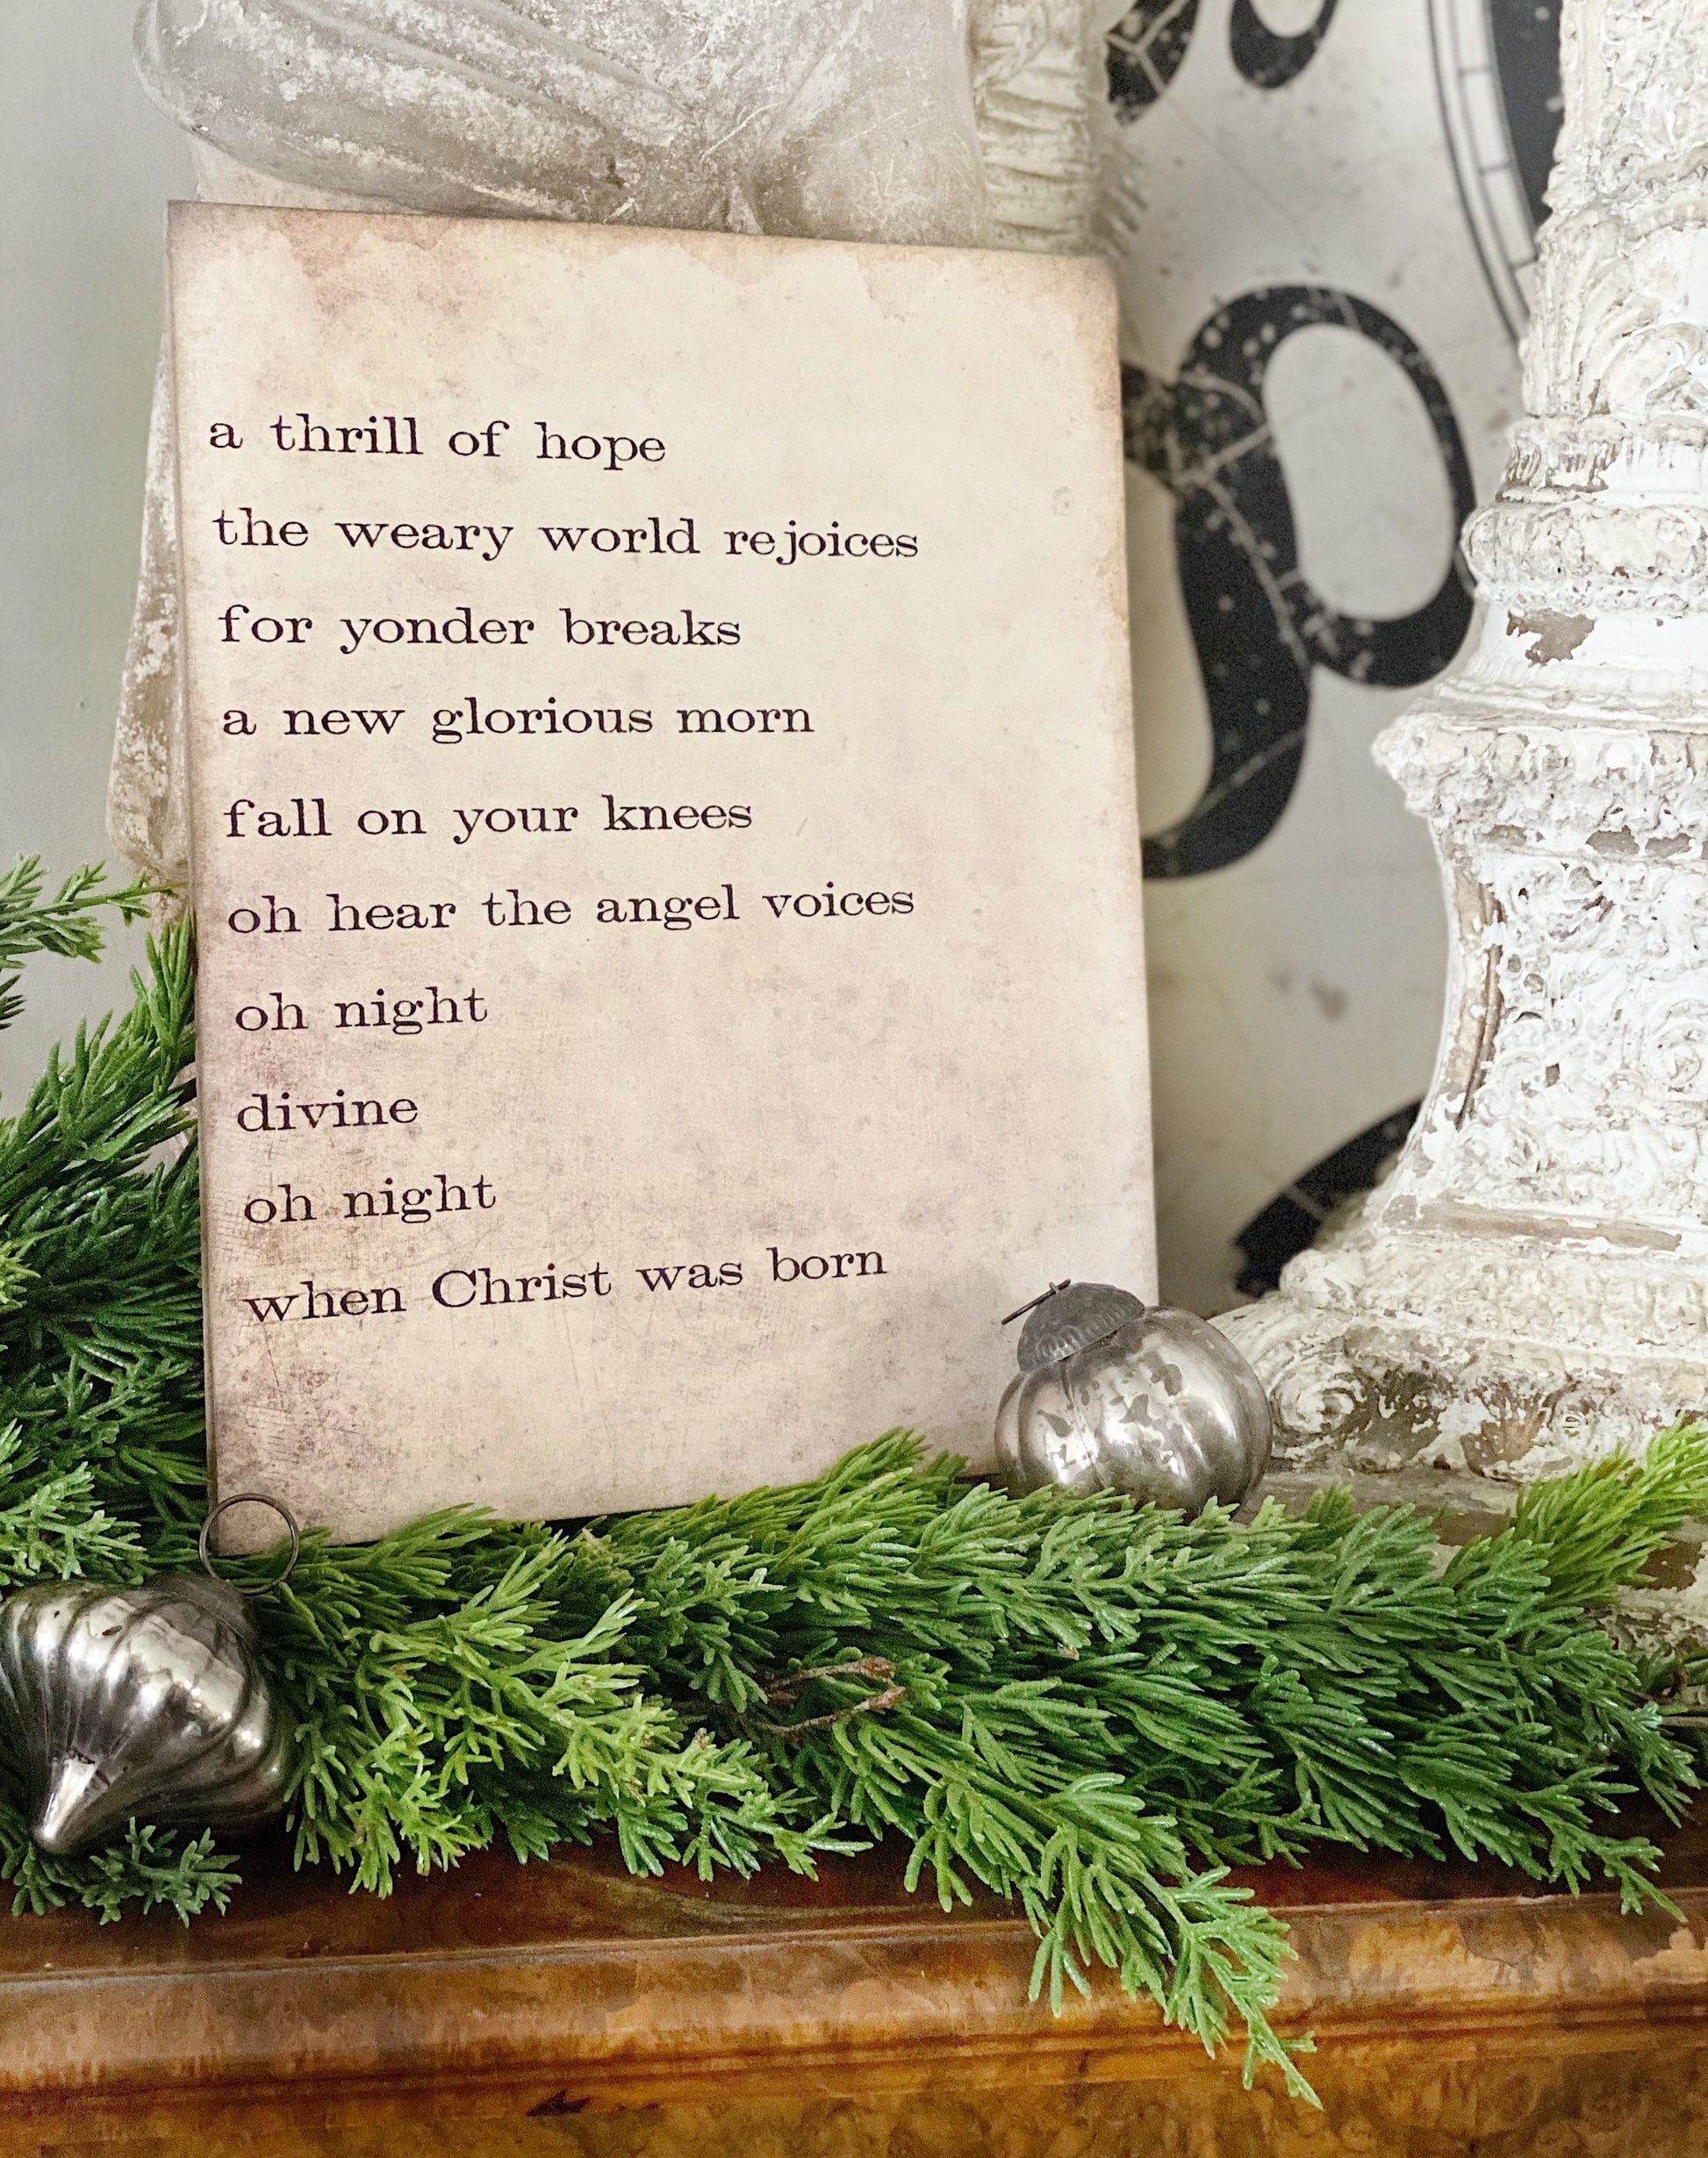 a thrill of hope
the weary world rejoices
for yonder breaks
a new glorious morn
fall on your knees
oh hear the angel voices
oh night
divine
oh night
when Christ was born